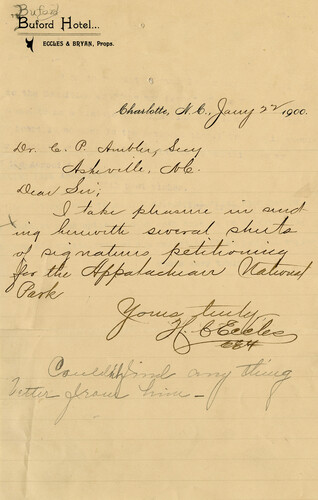 Buford
Buford Hotel...
ECCLES & BRYAN, Props.
Charlotte, N.C., Jany 22 1900.
Dr. C. P. Ambler, Secy
Asheville, N.C.
Dear Sir;
I take pleasure in send
ing herewith several sheets
of signatures petitioning
for the Appalachian National
Park
Yours truly
H. C. Eccles
Could find anything
better from him -